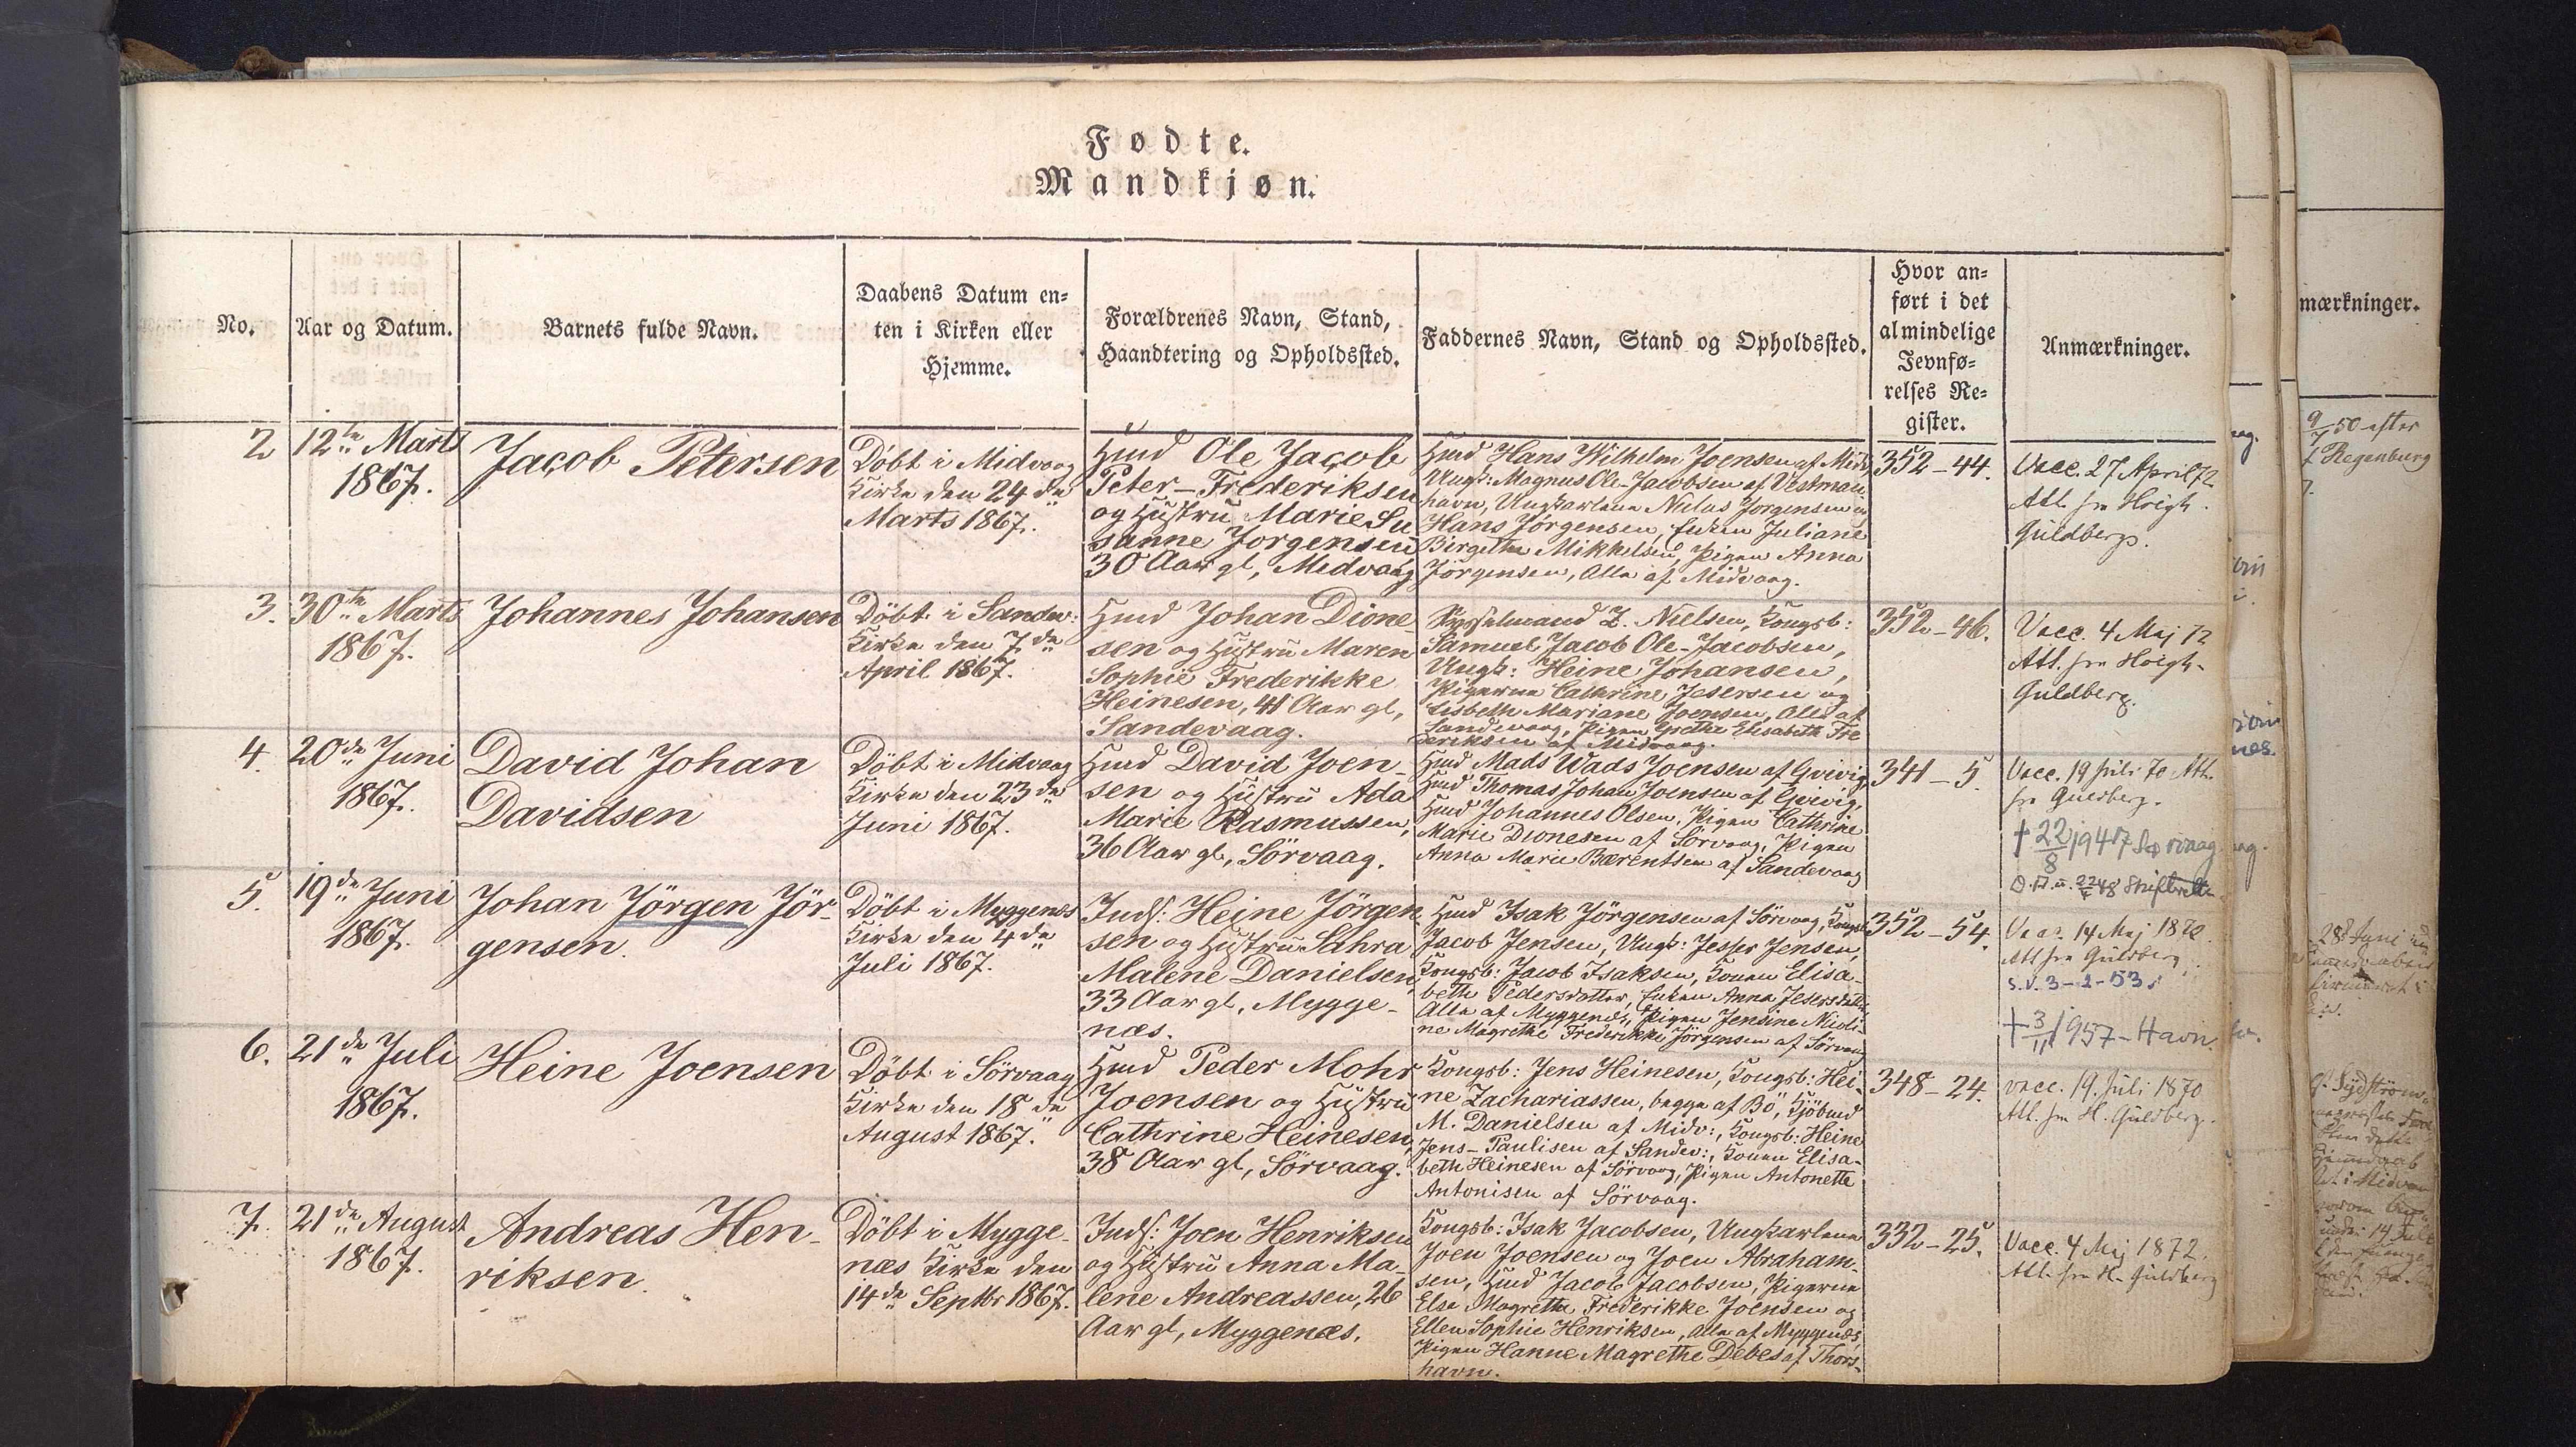 Fødte.
Mandkjøn.
No.
Aar og Datum.
Barnets fulde Navn.
Daabens Datum en=
ten i Kirken eller
Hjemme.
Forældrenes Navn, Stand,
Haandtering og Opholdssted.
Faddernes Navn, Stand og Opholdssted.
Hvor an=
ført i det
almindelige
Jevnfø=
relses Re=
gister.
Anmærkninger.
mærkninger.
2
12te Marts
1867.
Jacob Petersen
Döbt i Midvaag
Kirke den 24de
Marts 1867.
Hmd Ole Jacob
Peter-Frederiksen
og Hustru Marie Su
sanne Jorgensen
30 Aar gl, Medvaag
Hmd Hans Wilhelm Joensen af Midv,
Ungk: Magnus Ole-Jacobsen af Vestman
havn, Ungkarlene Niclas Jorgensen og
Hans Jörgensen, Enken Juliane
Birgethe Mikkelsen, Pigen Anna
Jörgensen, Alle af Midvaag.
352-44.
Vacc. 27 April 72
Att. fra Høigh
Guldberg.
3.
30te Marts
1867.
Johannes Johansen
Döbt i Sandev:
Kirke den 7de
April 1867.
Hmd Johan Dione-
sen og Hustru Maren
Sophie Frederikke
Heinesen, 41 Aar gl,
Sandevaag.
Sysselmand Z. Nielsen, Kongsb:
Samuel Jacob Ole-Jacobsen,
Ungk: Heine Johansen,
Pigerne Cathrine Jesersen og
Lisbeth Mariane Joensen, Alle af
Sandevaag, Pigen Grethe Elisabeth Fre
deriksen af Midvaag.
352-46.
Vacc. 4 Maj 72
Att. fra Høigh-
Guldberg.
4.
20de Juni
1867.
David Johan
Davidsen
Döbt i Midvaag
Kirke den 23de
Juni 1867.
Hmd David Joen-
sen og Hustru Ada
Marie Rasmussen,
36 Aar gl, Sörvaag.
Hmd Mads Wads Joensen af Gvivig,
Hmd Thomas Johan Joensen af Gvivig,
Hmd Johannes Olsen, Pigen Cathrine
Marie Dionesen af Sörvaag, Pigen
Anna Marie Bærentsen af Sandevaag
341-5.
Vacc. 19 Juli 70 Att.
fra Guldberg.
† 22/8 1947 Sørvaag
48 Skifteretten
5.
19de Juni
1867.
Johan Jörgen Jör-
gensen.
Döbt i Myggenæs
Kirke den 4de
Juli 1867.
Inds: Heine Jörgen
sen og Hustru Sahra
Malene Danielsen,
33 Aar gl, Mygge-
næs.
Hmd Isak Jörgensen af Sörvaag, Kongsb
Jacob Jensen, Ungk: Jesper Jensen,
Kongsb: Jacob Isaksen, Konen Elisa-
beth Pedersdatter, Enken Anna Jesersdatter
Alle af Myggenæs, Pigen Jensine Nicoli-
ne Magrethe Frederikke Jörgensen af Sörvaag
352-54.
Vacc. 14 Maj 1872.
Att fra Guldberg.
S.V. 3-2-53.
† 3/11 1957-Havn.
6.
21de Juli
1867.
Heine Joensen
Döbt i Sörvaag
Kirke den 18de
August 1867.
Hmd Peder Mohr
Joensen og Hustru
Cathrine Heinesen,
38 Aar gl, Sörvaag.
Kongsb: Jens Heinesen, Kongsb: Hei-
ne Zachariassen, begge af Bö, Hjöbmd
M. Danielsen af Midv:, Kongsb: Heine
Jens-Paulisen af Sandev:, Konen Elisa-
beth Heinesen af Sörvaag, Pigen Antonette
Antonisen af Sörvaag.
348-24.
vacc. 19. Juli 1870
Att. fra H. Guldberg.
7.
21de August
1867.
Andreas Hen-
riksen.
Döbt i Mygge-
næs Kirke den
14de Septbr 1867.
Inds: Joen Henriksen
og Hustru Anna Ma-
lene Andreassen, 26
Aar gl, Myggenæs.
Kongsb: Isak Jacobsen, Ungkarlene
Joen Joensen og Joen Abraham-
sen, Hmd Jacob Jacobsen, Pigerne
Else Magrethe Frederikke Joensen og
Ellen Sophie Henriksen, Alle af Myggenæs
Pigen Hanne Magrethe Debes af Thors-
havn.
332-25.
Vacc. 4 Maj 1872.
Att. fra H. Guldberg
9/7 50 efter
Regenburg
28 Juni